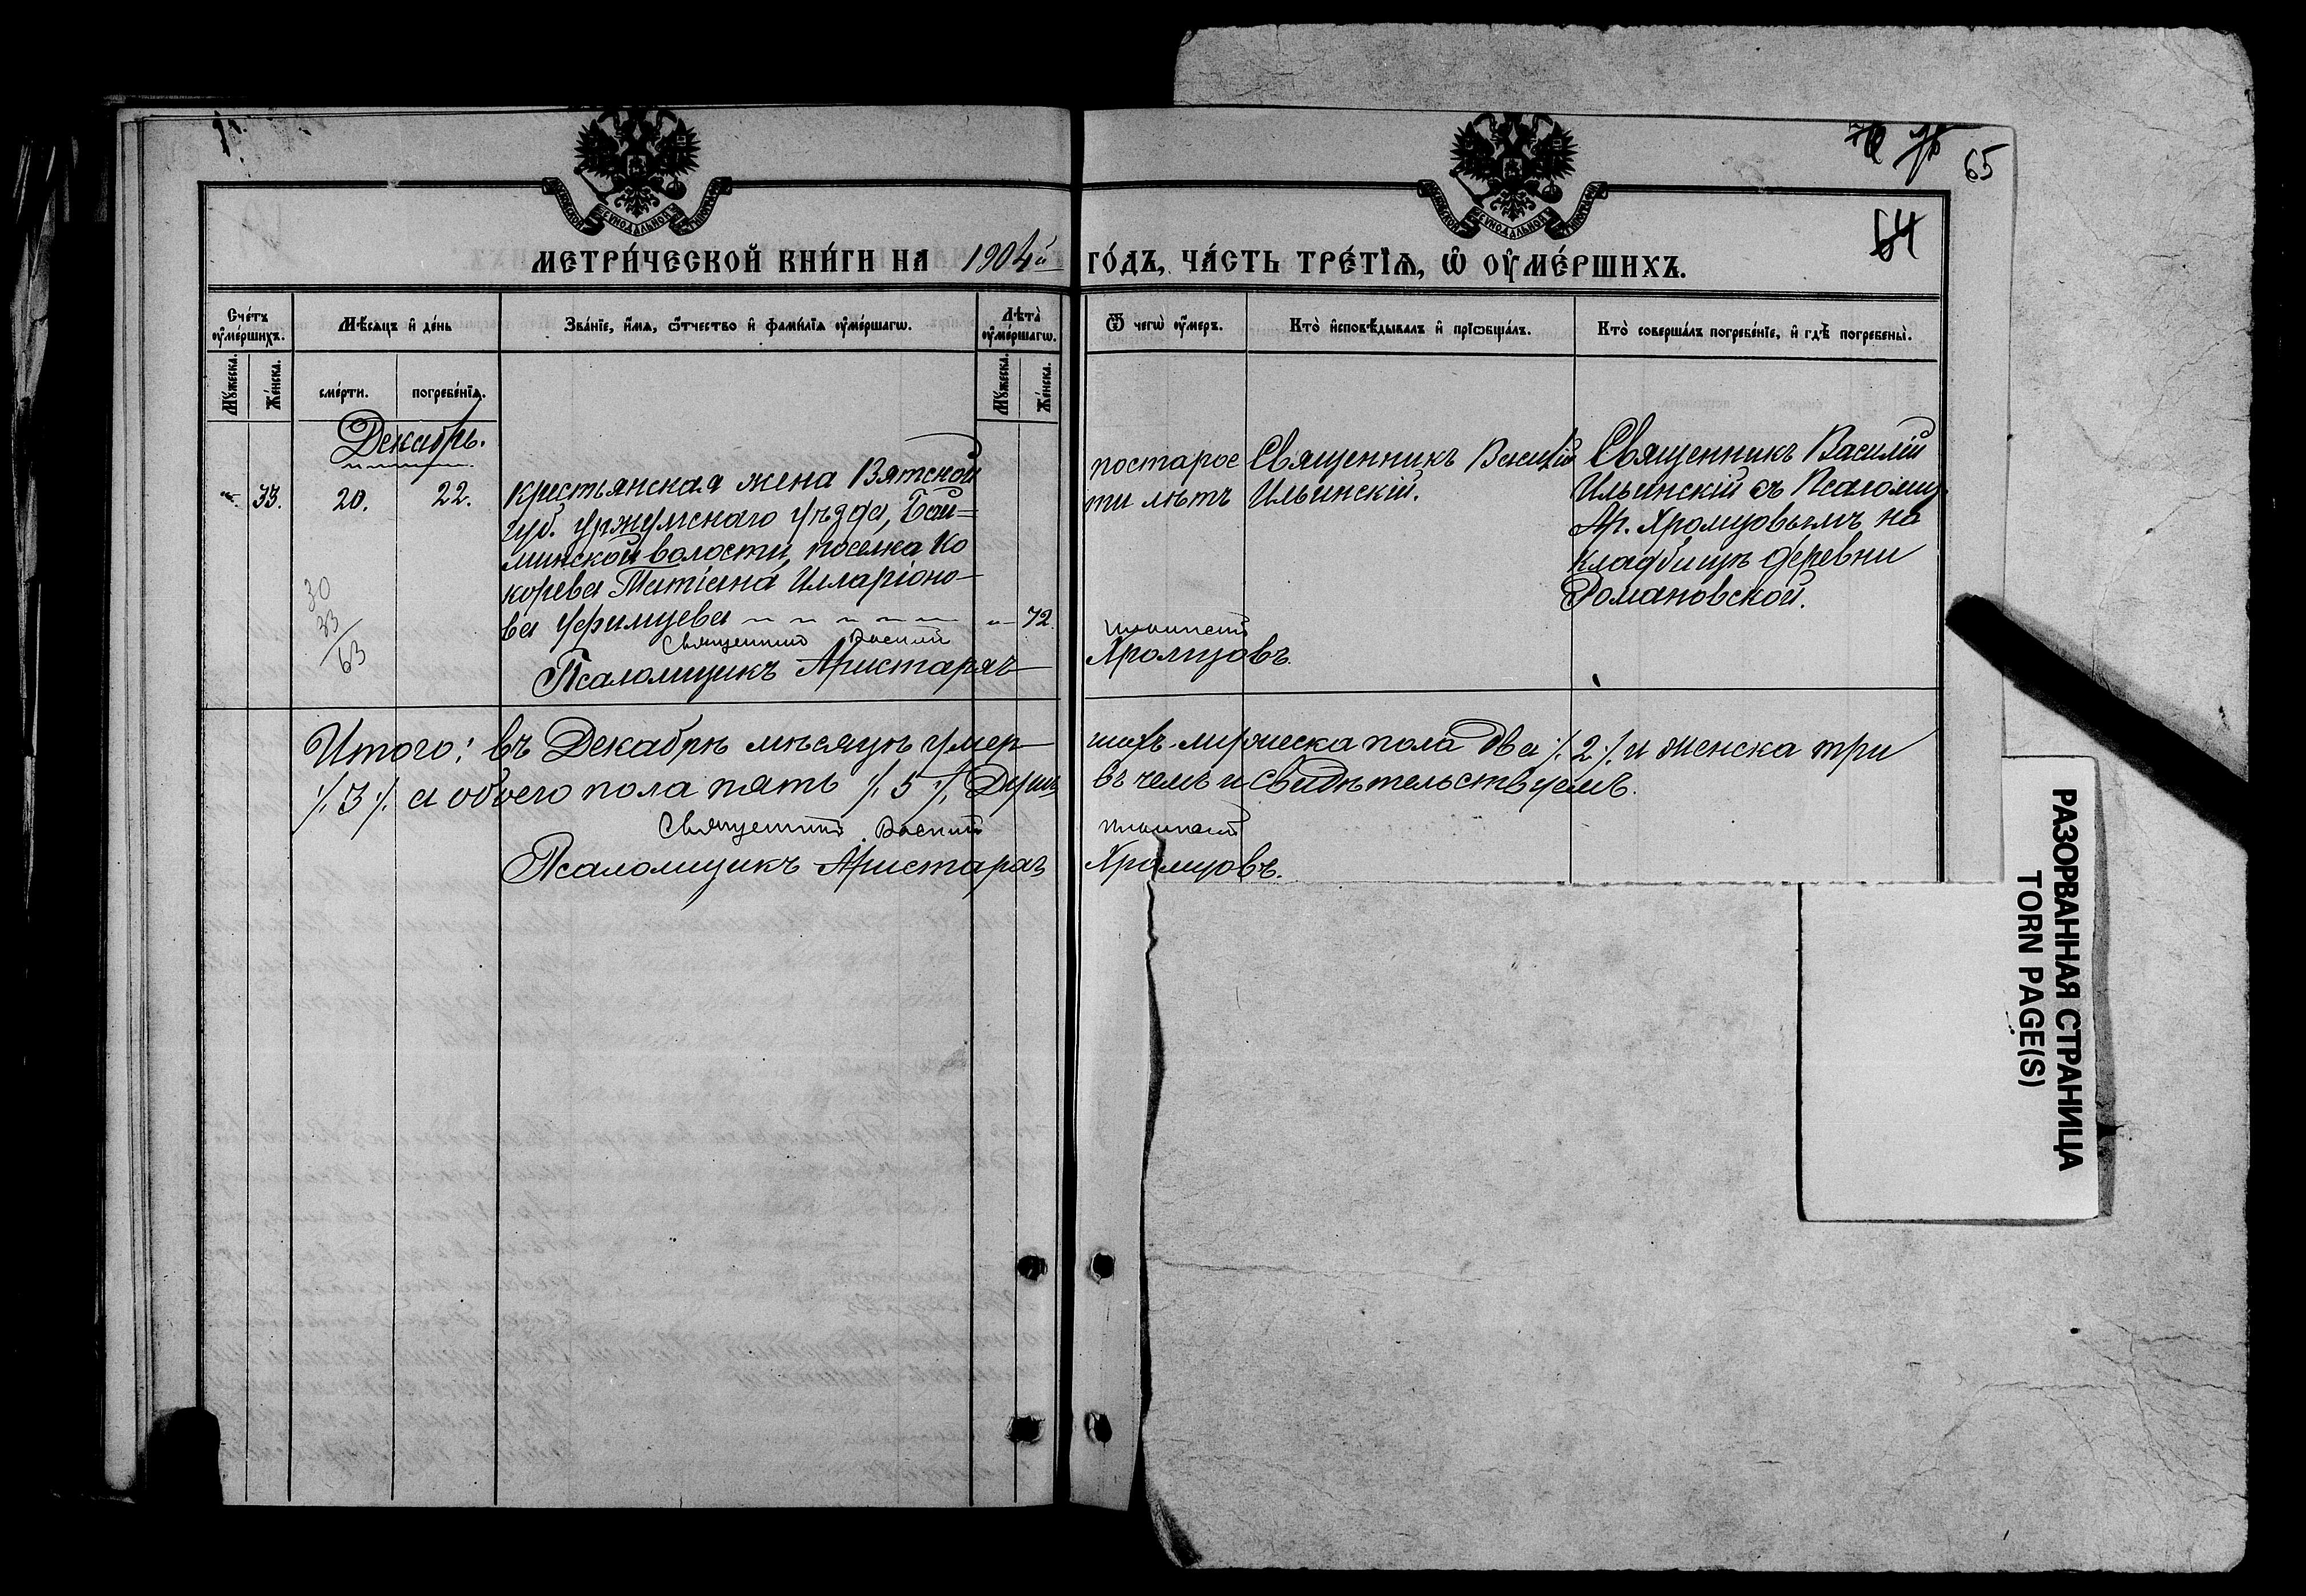 70 75 65
64
МЕТРИ́ЧЕСКОЙ КНИ́ГИ НА 1904й ГО́ДЪ, ЧА́СТЬ ТРЕ́ТІѦ, Ѡ҆ ОУ҆МЕ́РШИХЪ.
Сче́тъ оу҆ме́ршихъ.
Мѣ́сѧцъ и҆ де́нь
Зва́нїе, и҆́мѧ, ѻ҆́тчество и҆ фами́лїѧ оу҆ме́ршагѡ.
Лѣ́та оу҆ме́ршагѡ.
Ѿ чегѡ̀ оу҆́меръ.
Кто̀ и҆сповѣ́дывалъ и҆ прїѡбща́лъ.
Кто̀ соверша́лъ погребе́нїе, и҆ гдѣ̀ погребены̀.
Мꙋ́жеска. Же́нска.
сме́рти. погребе́нїѧ.
Мꙋ́жеска. Же́нска.
Декабрь.
33. 20. 22.
Крестьянская жена Вятской
губ. Уржумскаго уѣзда,
минской волости, поселка Ко
корева Татіана Илларіоно-
ва Ефимцева 72.
постарос
ти лѣтъ
Священникъ Василій
Ильинскій.
Священникъ Василій
Ильинскій съ Псаломщ.
Ар. Хромцовымъ на
кладбищѣ деревни
Романовской.
30
33
63
Священникъ Василій Ильинскій
Псаломщикъ Аристархъ Хромцовъ.
Итого: въ Декабрѣ мѣсяцѣ умер-шихъ мужеска пола два ٪ 2 ٪ и женска три
٪ 3 ٪ а обоего пола пять ٪ 5 ٪ Душъ въ чемъ и свидѣтельствуемъ.
Священникъ Василій Ильинскій
Псаломщикъ Аристархъ Хромцовъ.
РАЗОРВАННАЯ СТРАНИЦА
TORN PAGE(S)